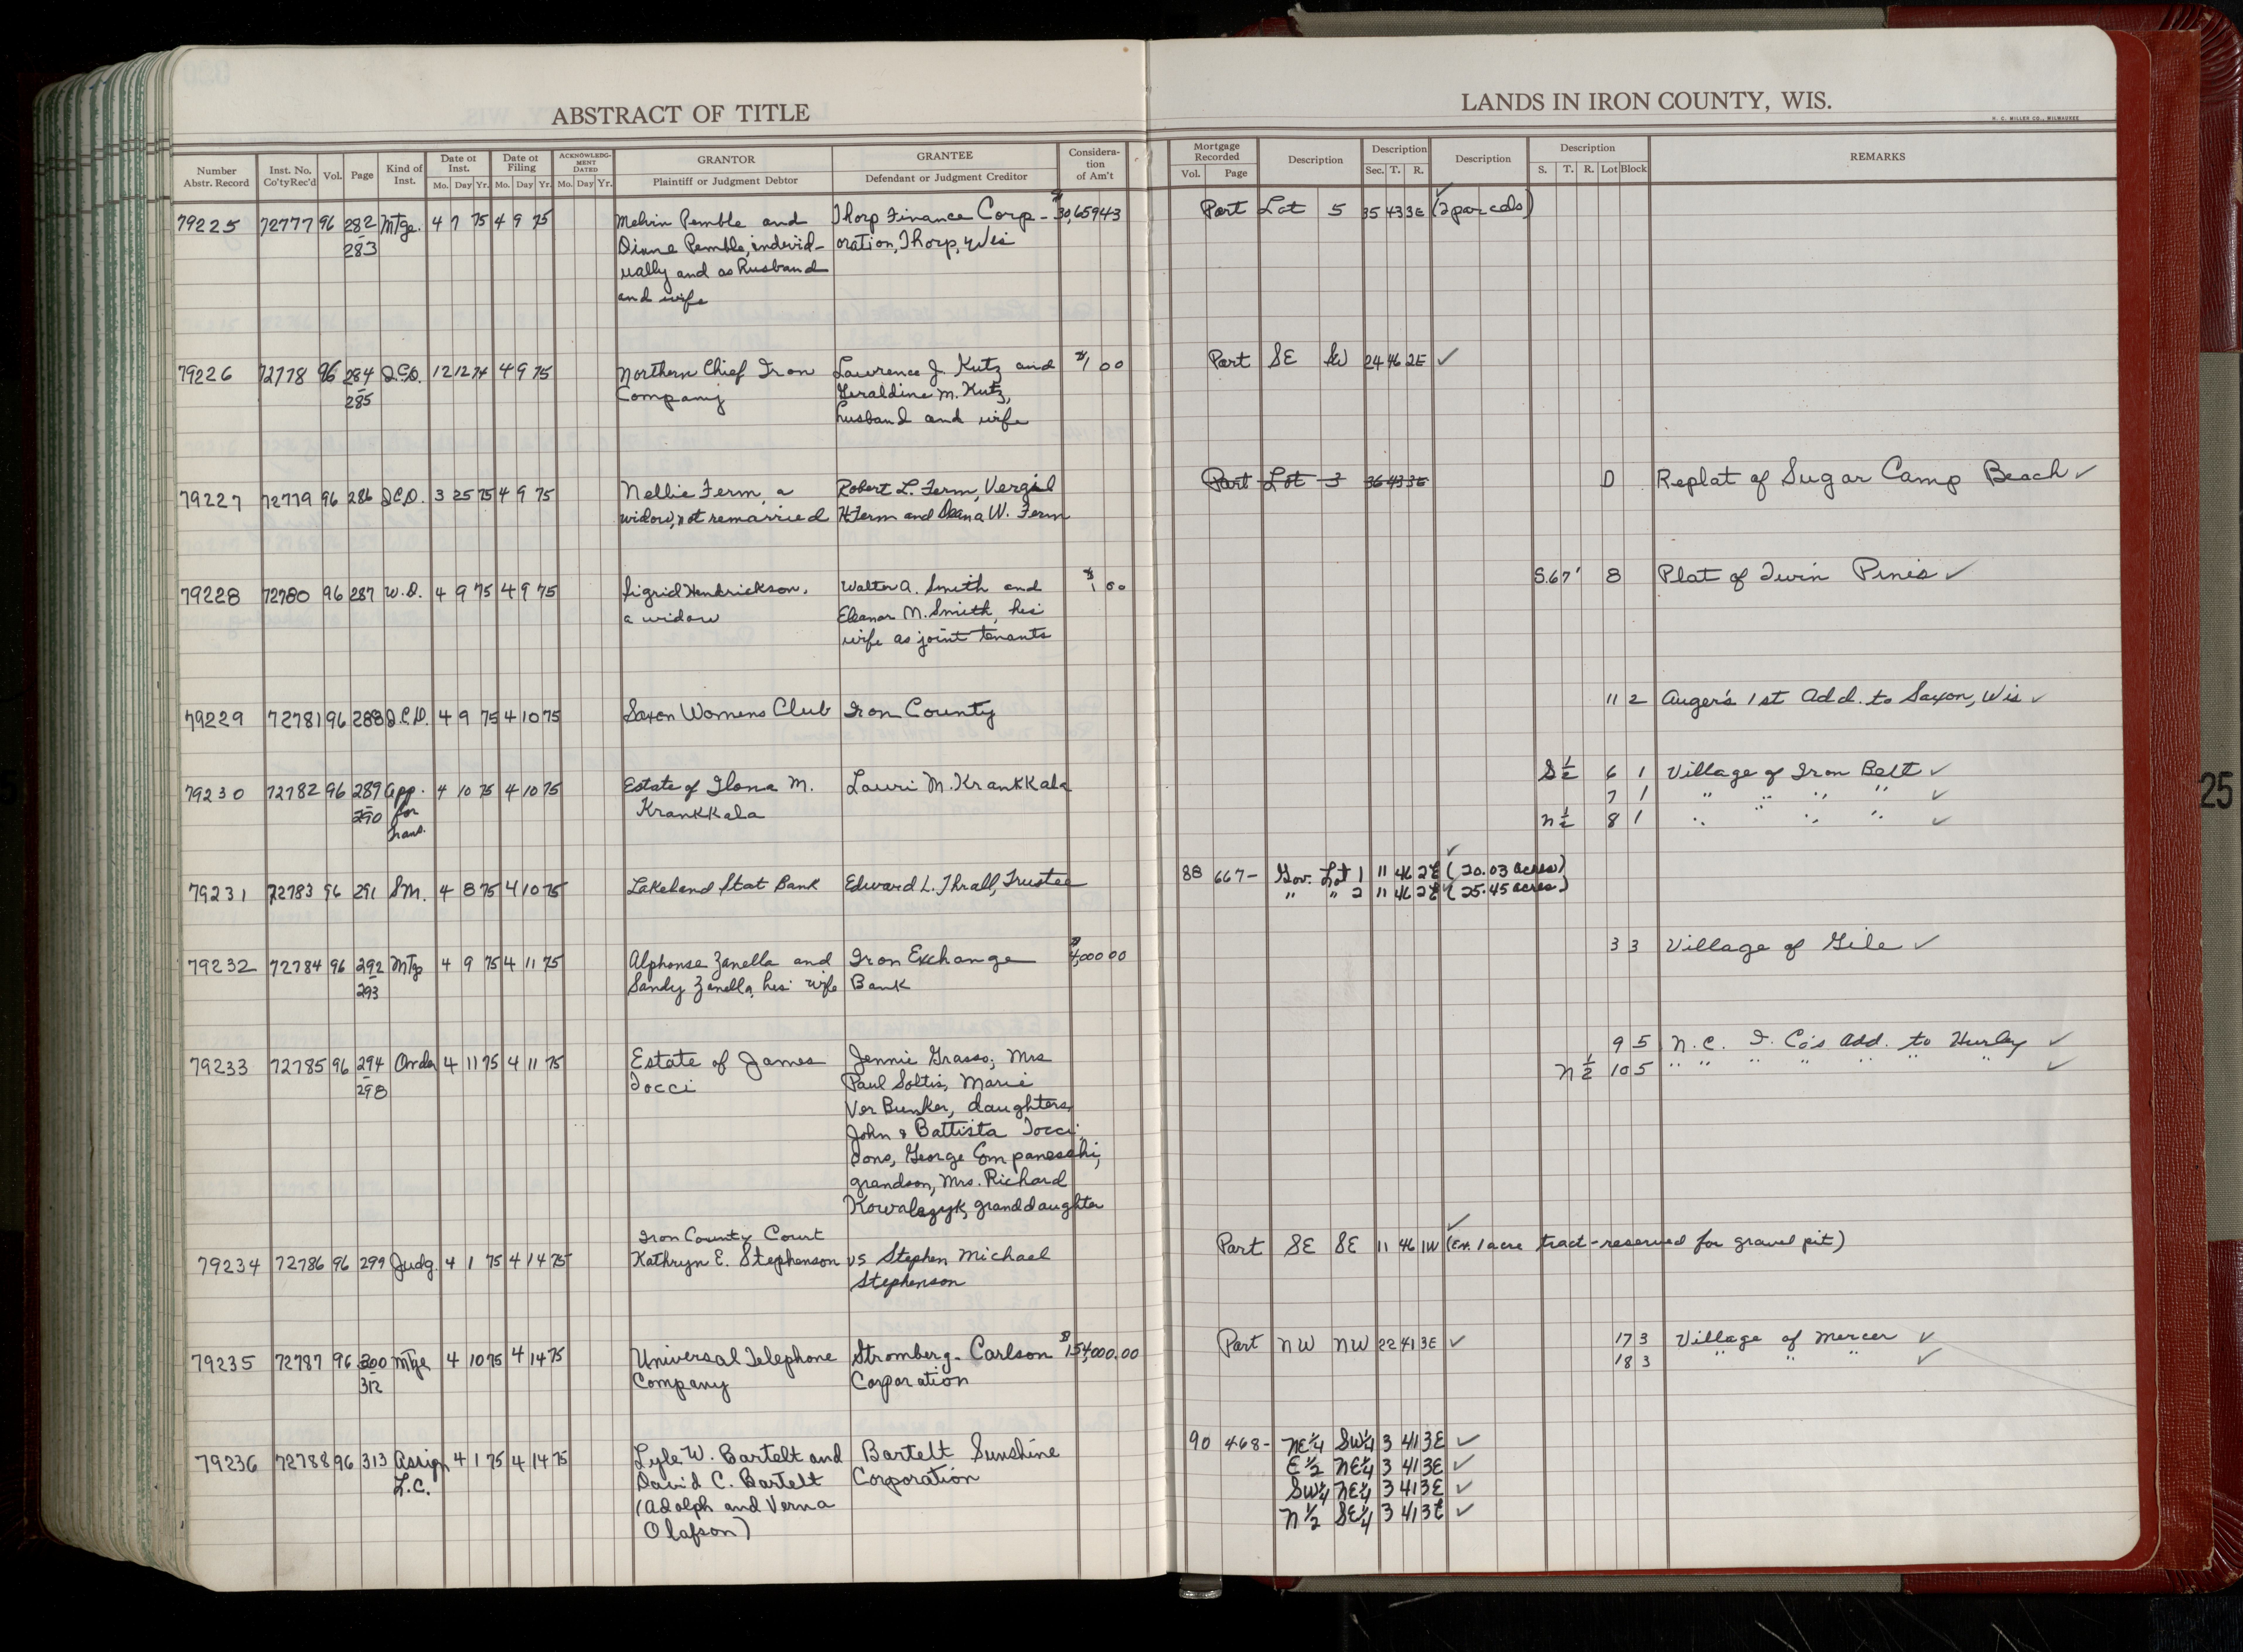 ABSTRACT OF TITLE
LANDS IN IRON COUNTY, WIS.
H. C. MILLER CO., MILWAUKEE
Number Abstr. Record | Inst. No. Co'ty Rec'd | Vol. | Page | Kind of Inst. | Date of Inst. Mo. Day Yr. | Date of Filing Mo. Day Yr. | ACKNOWLEDG-MENT DATED Mo. Day Yr. | GRANTOR Plaintiff or Judgment Debtor | GRANTEE Defendant or Judgment Creditor | Considera-tion of Am't | Mortgage Recorded Vol. Page | Description | Description Sec. T. R. | Description | Description S. T. R. Lot Block | REMARKS
79225 72777 96 282 Mtge. 4 7 75 4 9 75 Melvin Pemble and Thorp Finance Corp- $30,659 43 Part Lot 5 35 43 3E (2 parcels) ✓
283 Diane Pemble, individ- oration, Thorp, Wis
ually and as husband
and wife
79226 72778 96 284 Q.C.D. 12 12 74 4 9 75 Northern Chief Iron Lawrence J. Kutz and $1 00 Part SE SW 24 46 2E ✓
285 Company Geraldine M. Kutz,
husband and wife
79227 72779 96 286 Q.C.D. 3 25 75 4 9 75 Nellie Ferm, a Robert L. Ferm, Vergil Part Lot 3 36 43 3E D Replat of Sugar Camp Beach ✓
widow, not remarried H. Ferm and Deana W. Ferm
79228 72780 96 287 W.D. 4 9 75 4 9 75 Sigrid Hendrickson, Walter A. Smith and $1 00 S.67' 8 Plat of Twin Pines ✓
a widow Eleanor M. Smith, his
wife as joint tenants
79229 72781 96 288 Q.C.D. 4 9 75 4 10 75 Saxon Womens Club Iron County 11 2 Auger's 1st Add. to Saxon, Wis ✓
79230 72782 96 289 App. 4 10 75 4 10 75 Estate of Ilona M. Lauri M. Krankkala S½ 6 1 Village of Iron Belt ✓
290 for Krankkala 7 1 " " " " ✓
Trans. N½ 8 1 " " " " ✓
79231 72783 96 291 SM. 4 8 75 4 10 75 Lakeland Stat Bank Edward L. Thrall, Trustee 88 667- Gov. Lot 1 11 46 2E (20.03 acres) ✓
" " 2 11 46 2E (25.45 acres) ✓
79232 72784 96 292 Mtge 4 9 75 4 11 75 Alphonse Zanella and Iron Exchange $4,000 00 3 3 Village of Gile ✓
293 Sandy Zanella, his wife Bank
79233 72785 96 294 Order 4 11 75 4 11 75 Estate of James Jennie Grasso, Mrs 9 5 N.C. I. Co's Add. to Hurley ✓
298 Tocci Paul Soltis, Marie N½ 10 5 " " " " " " " ✓
Ver Bunker, daughters,
John & Battista Tocci,
sons, George Companeschi,
grandson, Mrs. Richard
Kowalczyk, granddaughter
Iron County Court
79234 72786 96 299 Judg. 4 1 75 4 14 75 Kathryn E. Stephenson vs Stephen Michael Part SE SE 11 46 1W (Ex. 1 acre tract-reserved for gravel pit) ✓
Stephenson
79235 72787 96 300 Mtge 4 10 75 4 14 75 Universal Telephone Stromberg-Carlson $154,000.00 Part NW NW 22 41 3E ✓ 17 3 Village of Mercer ✓
312 Company Corporation 18 3 " " " ✓
79236 72788 96 313 Assign 4 1 75 4 14 75 Lyle W. Bartelt and Bartelt Sunshine 90 468- NE¼ SW¼ 3 41 3E ✓
L.C. David C. Bartelt Corporation E½ NE¼ 3 41 3E ✓
(Adolph and Verna SW¼ NE¼ 3 41 3E ✓
Olafson) N½ SE¼ 3 41 3E ✓
25